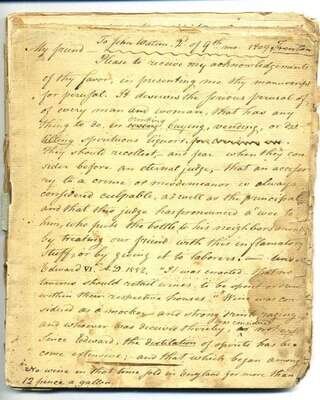 To John Watson 2d of 9th mo. 1809 Trenton
My friend
Please to receive my acknowledgements
of thy favor, in presenting me thy manuscript
for perusal. It deserves the serious perusal of
of every man and woman, that has any
thing to do, in drinking buying, vending, or dis-
tilling spirituous liquors
They should recollect, and fear when they con-
sider before an eternal judge, that an access-
ry to a crime or misdemeanor is always
considered culpable, as well as the principal
and that this judge has pronounced a woe to
him, who puts the bottle to his neighbors mouth
by treating our friend with this inflamatory
stuff, or by giving it to laborers.
Edward VI. A.D. 1552, "It was enacted that no
taverns should retail wines, to be spent or drunk
within their respective houses." Wine was con-
sidered as a mocker and strong drink raging
and whoever was deceived thereby, as not wise
Since Edward, the distilation of spirits has be-
come extensive; and that which began among
No wine in that time sold in England for more than
12 pence a gallon.